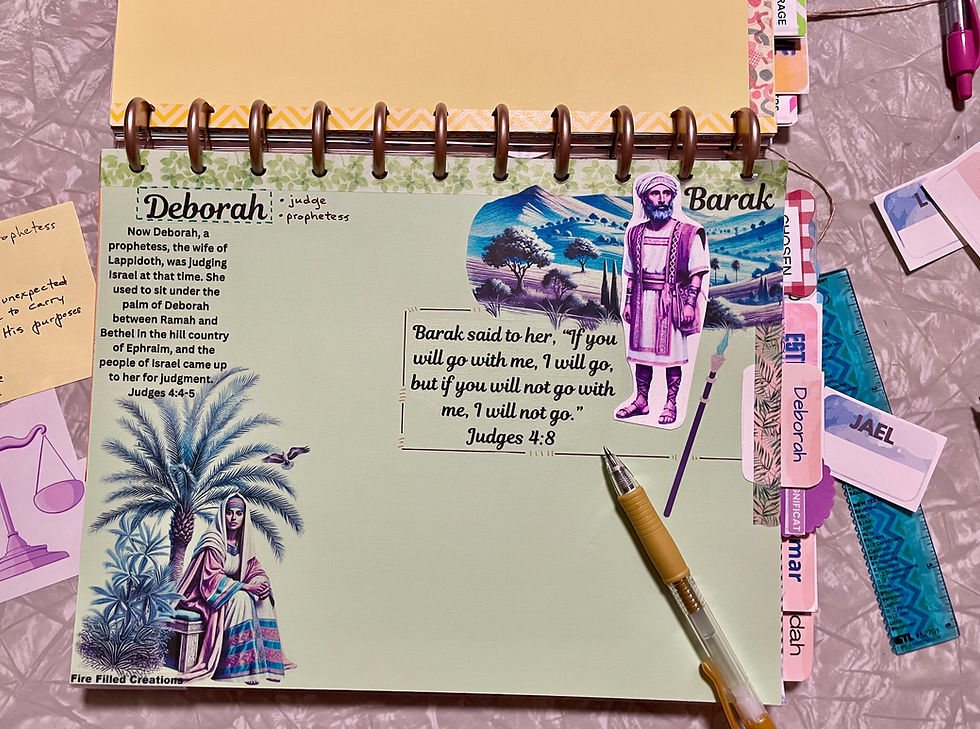 Deborah
• judge
• prophetess
Now Deborah, a
prophetess, the wife of
Lappidoth, was judging
Israel at that time. She
used to sit under the
palm of Deborah
between Ramah and
Bethel in the hill country
of Ephraim, and the
people of Israel came up
to her for judgment.
Judges 4:4-5
Fire Filled Creations
Barak
Barak said to her, “If you
will go with me, I will go,
but if you will not go with
me, I will not go.”
Judges 4:8
unexpected
to carry
His purposes
RAGE
CHOSEN
EST
Deborah
GNIFICAT
mar
dah
JAEL
L